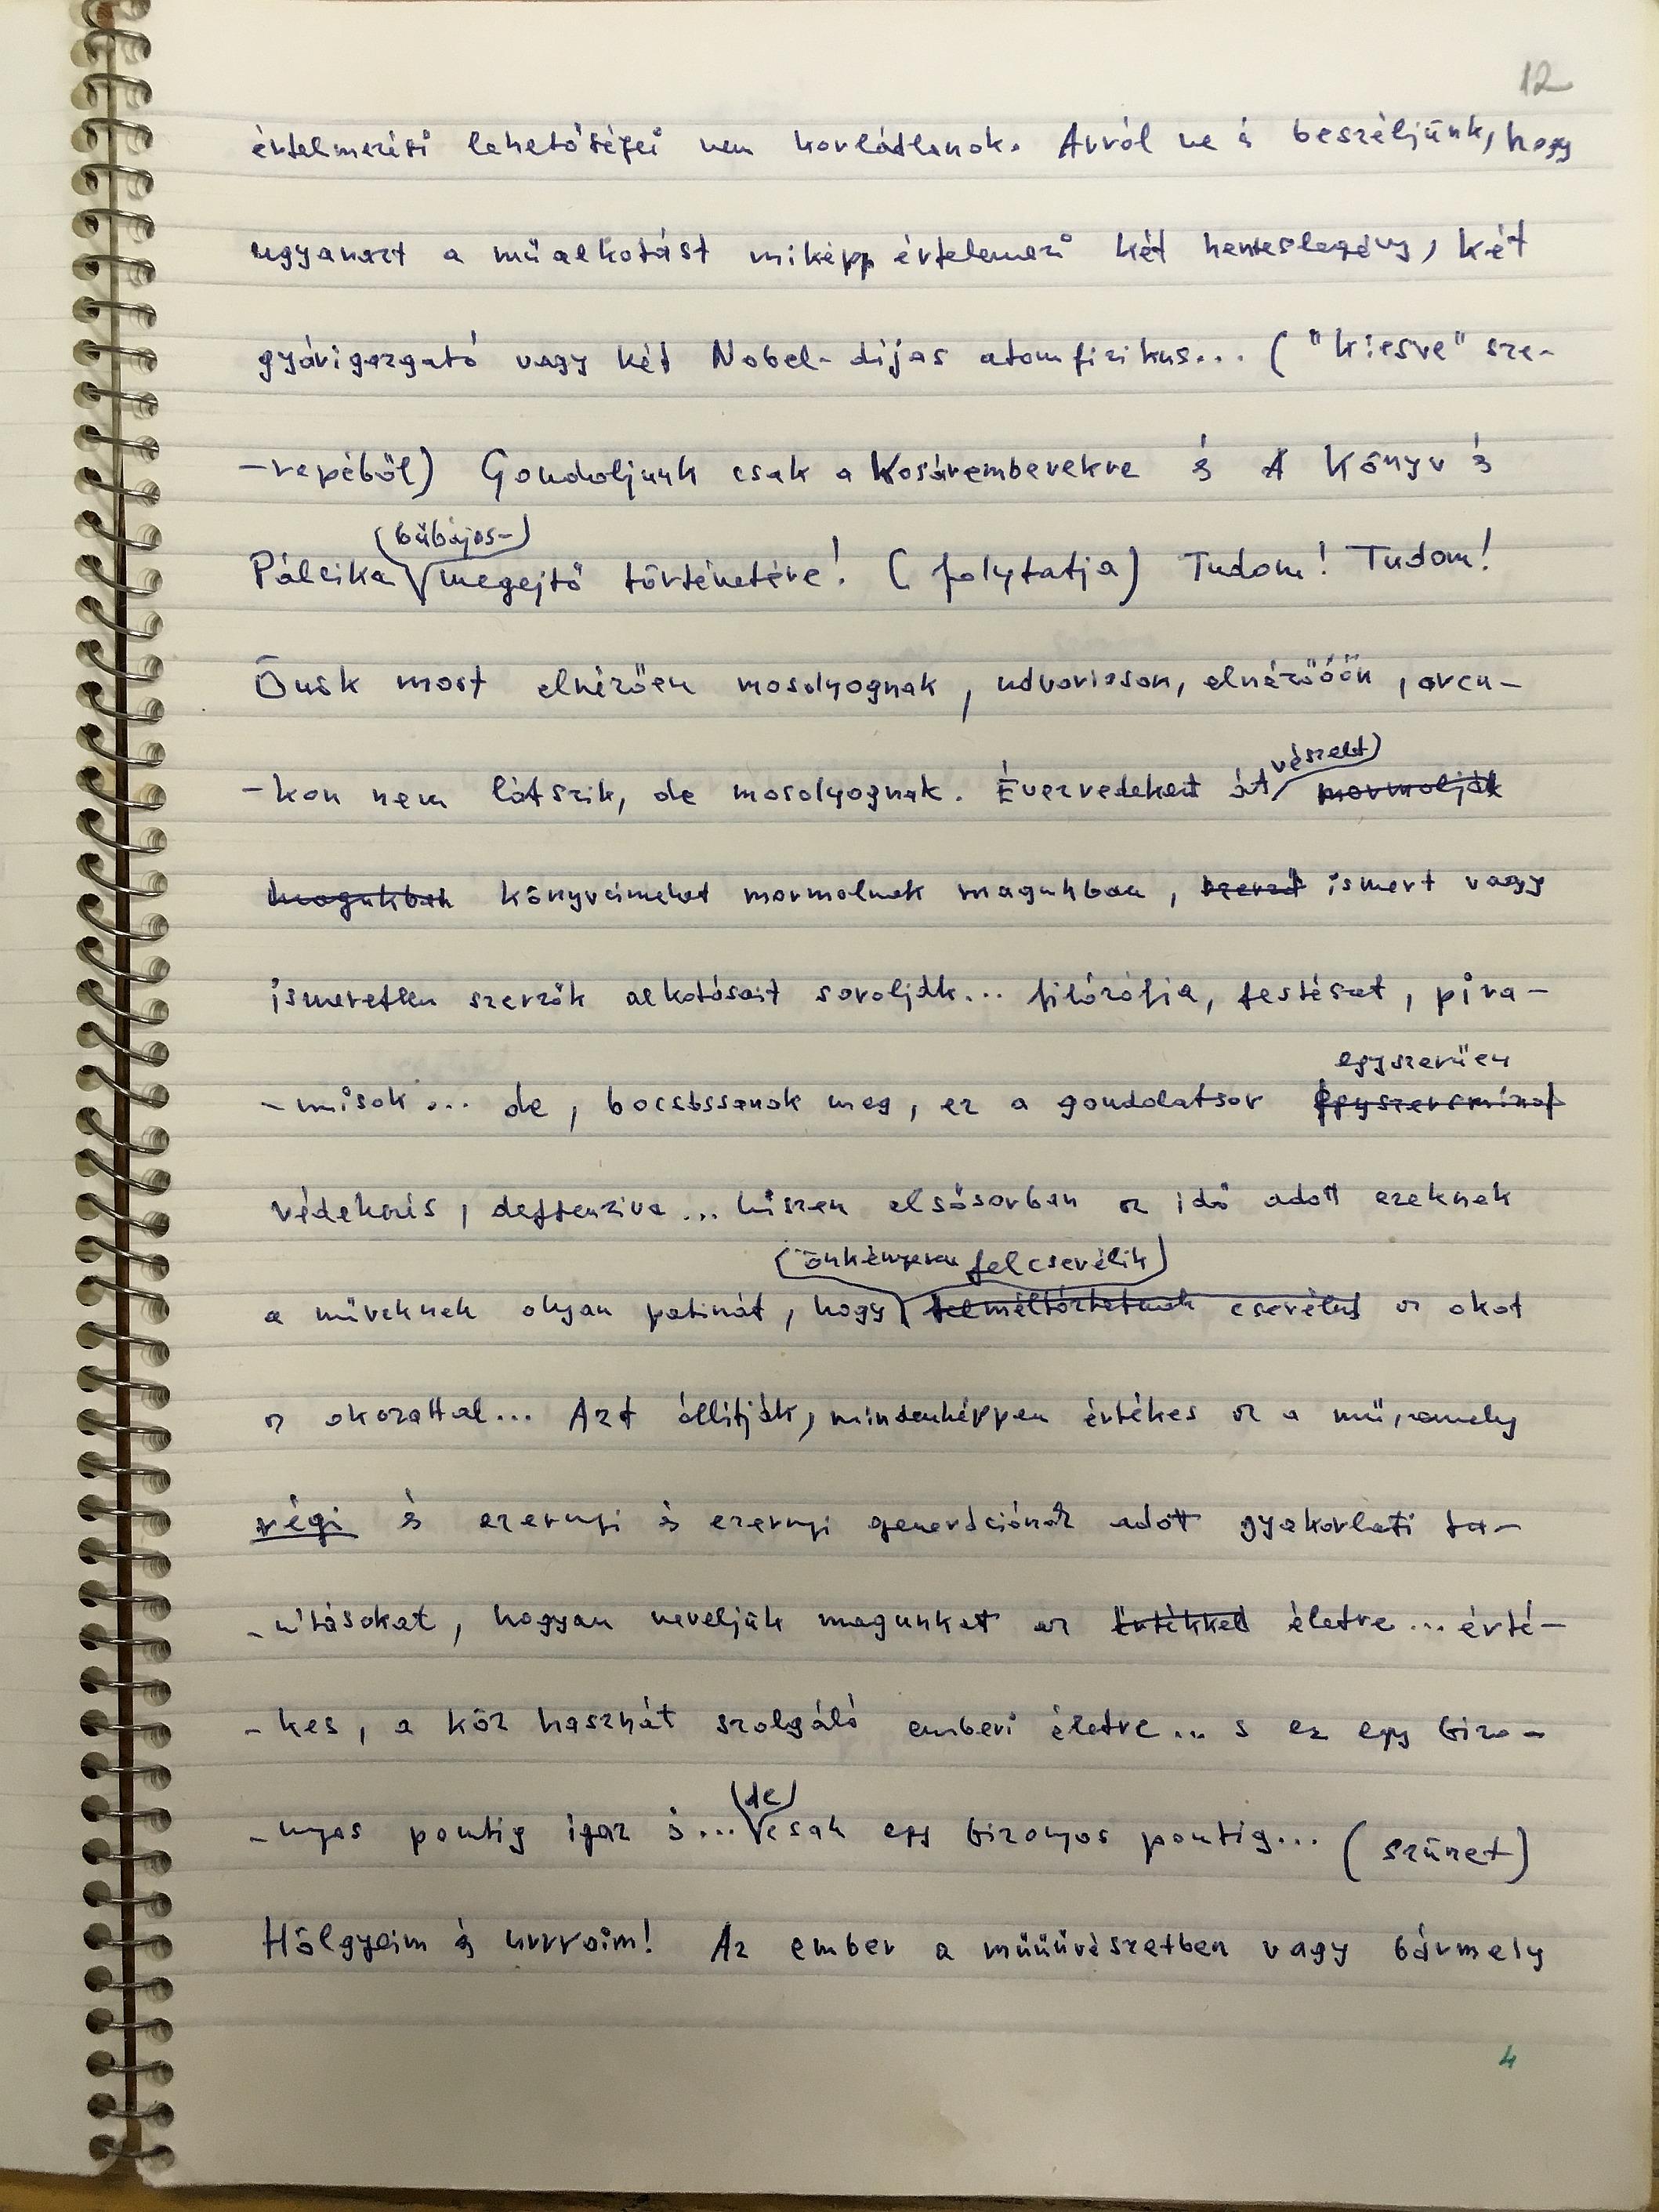 12
értelmezési lehetőségei nem korlátlanok. Arról ne is beszéljünk, hogy
ugyanazt a műalkotást miképp értelmezi két henteslegény, két
gyárigazgató vagy két Nobel-díjas atomfizikus... ("kiesve" sze-
-repéből) Gondoljunk csak a Kosáremberekre és A Könyv és
(bűbájos-)
Pálcika megejtő történetére! (folytatja) Tudom! Tudom!
Önök most elnézően mosolyognak, udvariasan, elnézőőőn, arcu-
vészelt)
-kon nem látszik, de mosolyognak. Évezredeket át mormolják
magukban könyvcímeket mormolnak magukban, szerző ismert vagy
ismeretlen szerzők alkotásait sorolják... filózófia, festészet, pira-
egyszerűen
-misok... de, bocsássanak meg, ez a gondolatsor
védekezés, deffenzíva... hiszen elsősorban az idő adott ezeknek
(önkényesen felcserélik)
a műveknek olyan patinát, hogy felméltóztatnak cserélni az okot
az okozattal... Azt állítják, mindenképpen értékes az a mű, amely
régi és ezernyi és ezernyi generációnak adott gyakorlati ta-
-nításokat, hogyan neveljük magunkat az értékked életre... érté-
-kes, a köz hasznát szolgáló emberi életre... s ez egy bizo-
(de)
-nyos pontig igaz is... csak egy bizonyos pontig... (szünet)
Hölgyeim és urrraim! Az ember a műűűvészetben vagy bármely
4